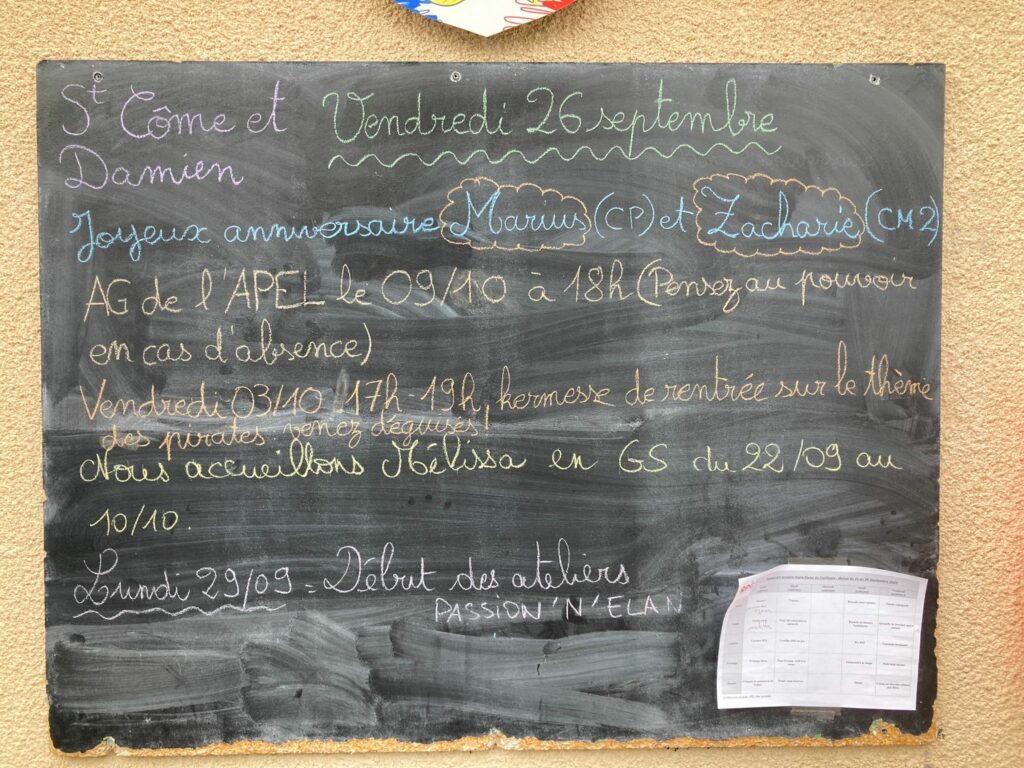 St Côme et
Damien
Vendredi 26 septembre
Joyeux anniversaire Marius (CP) et Zacharie (CM2)
AG de l'APEL le 09/10 à 18h (Pensez au pouvoir
en cas d'absence)
Vendredi 03/10 17h-19h, kermesse de rentrée sur le thème
des pirates venez déguisés!
Nous accueillons Mélissa en GS du 22/09 au
10/10.
Lundi 29/09 = Début des ateliers
PASSION'N'ELAN